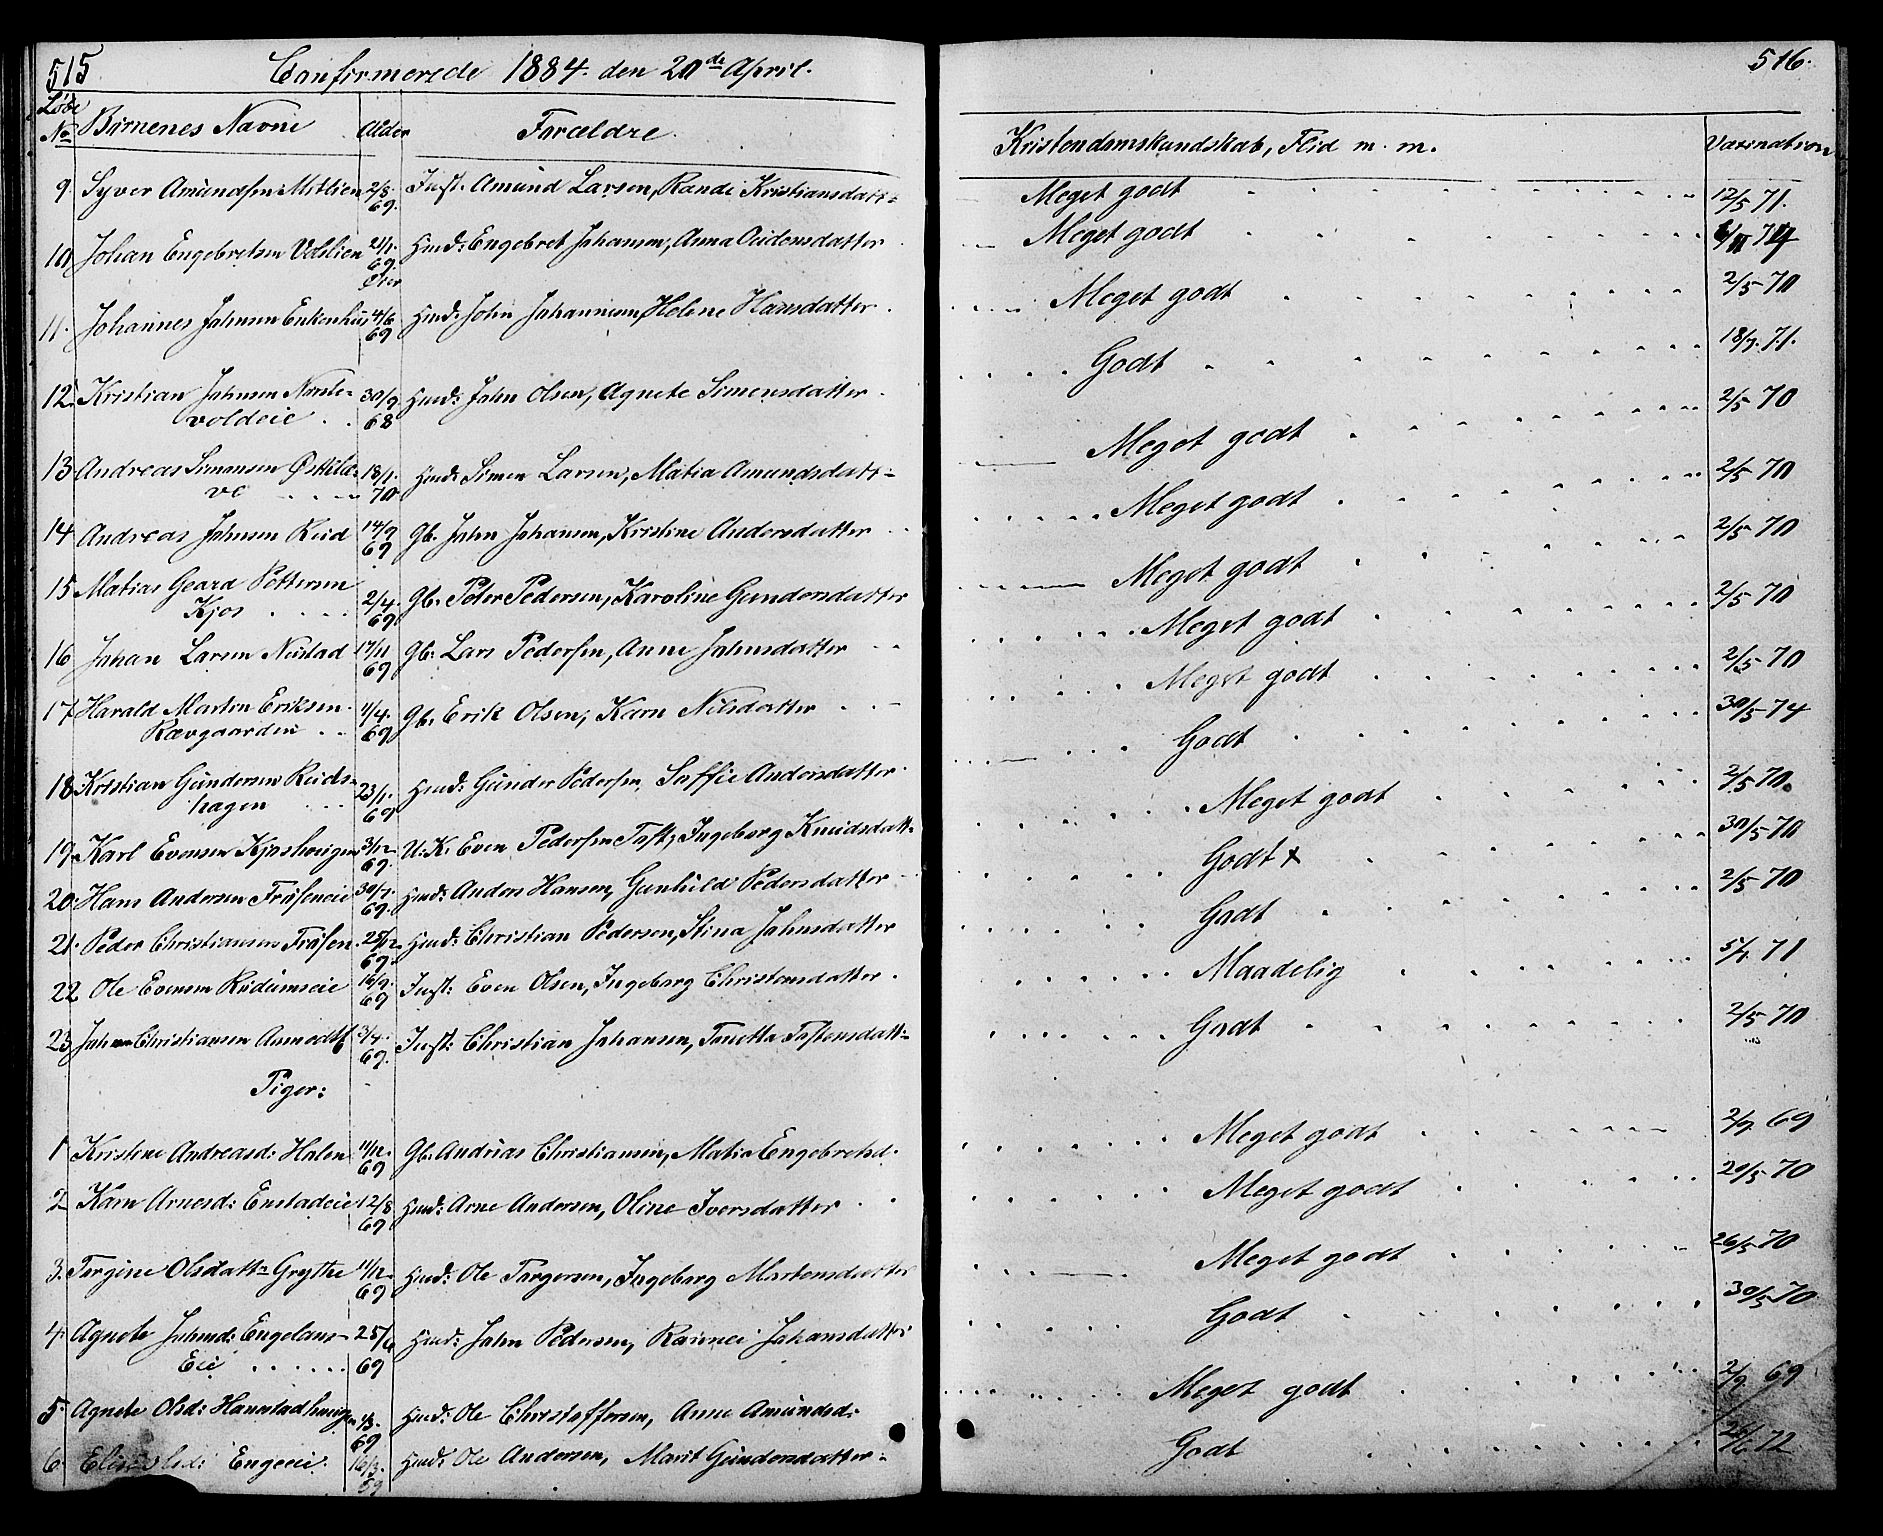 515 Confirmerede 1884. den 20de April. 516.
Løbe No Børnenes Navne Alder Forældre Kristendomskundskab, Flid m. m. Vaxination
9. Syver Amundsen Mitlien 2/8. 69. Inst. Amund Larsen, Randi Kristiansdatt: Meget godt 12/5 71.
10 Johan Engebretsen Volslien 21/1. 69. Huusm: Engebret Johansen, Anna Oudensdatter Meget godt
11. Johannes Johnsen Enkenhus 4/6 69 Hmd: John Johannesen, Helene Hansdatter Meget godt 2/5 70
12. Kristian Johnsen Narste-
voldeie 30/9 68 Hmd: John Olsen, Agnete Simensdatter Godt 18/7. 71.
13 Andreas Simensen 18/1. 70 Hmd: Simen Larsen, Matia Amundsdatt: Meget godt 2/5 70
14 Andreas Johnsen Reid 14/9 69 Gb. John Johansen, Kristine Andersdatter Meget godt 2/5 70
15 Matias Geard Pettersen
Kjos 2/4. 69. Gb. Peter Pedersen, Karoline Gundersdatter Meget godt 2/5 70
16 Johan Larsen Nestad 17/11 69 Gb: Lars Pedersen, Anne Johnsdatter Meget godt 2/5 70
17 Harald Marten Eriksen
Rævgaarden 11/4. 69 Gb. Erik Olsen, Karn Nilsdatter Meget godt 2/5 70
18 Kristian Gundersen Reids-
hagen 23/1. 69 Hmd: Gunder Pedersen, Soffie Andersdatter Godt 30/5 74
19. Karl Evensen Kjoshougen 3/12 69. U.K. Even Pedersen Toft, Ingeborg Knudsdatt. Meget godt 2/5 70.
20. Hans Andersen Frøseneie 30/7. 69. Hmd: Anders Hansen, Gunhild Pedersdatter Godt x 30/5 70
21. Peder Christiansen Frøsen. 25/12 69. Hmd: Christian Pedersen, Stina Johnsdatter Godt 2/5 70
22 Ole Evensen Rudumseie 16/9. 69 Inst: Even Olsen, Ingeborg Christensdatter Maadelig 5/1. 71
23 Johan Christiansen 3/4. 69. Inst: Christian Johansen, Tonetta Toftensdatt: Godt 2/5 70
Piger:
1 Kristine Andreasd: Holen 11/12. 69 Gb. Andrias Christiansen, Matia Engebretsd. Meget godt 2/9 69
2 Karn Arnesd: Enstadeie 12/8 69 Hmd: Arne Andersen, Oline Iversdatter Meget godt 20/5 70
3. Torgine Olsdatt: Grythe 11/12. 69 Hmd: Ole Torgersen, Ingeborg Martensdatter Meget godt 26/5 70
4. Agnete Johnsd: Engelaus-
Eie 25/6 69 Hmd: John Pedersen, Johansdatter Godt 30/5 70
5 Agnete Olsd: Hanestadhaugen 1/3. 69 Hmd: Ole Christoffersen, Anne Amundsd: Meget godt 2/9 69
6. Engeeie 16/3. 69 Hmd: Ole Andersen, Marit Gundersdatter: Godt 72